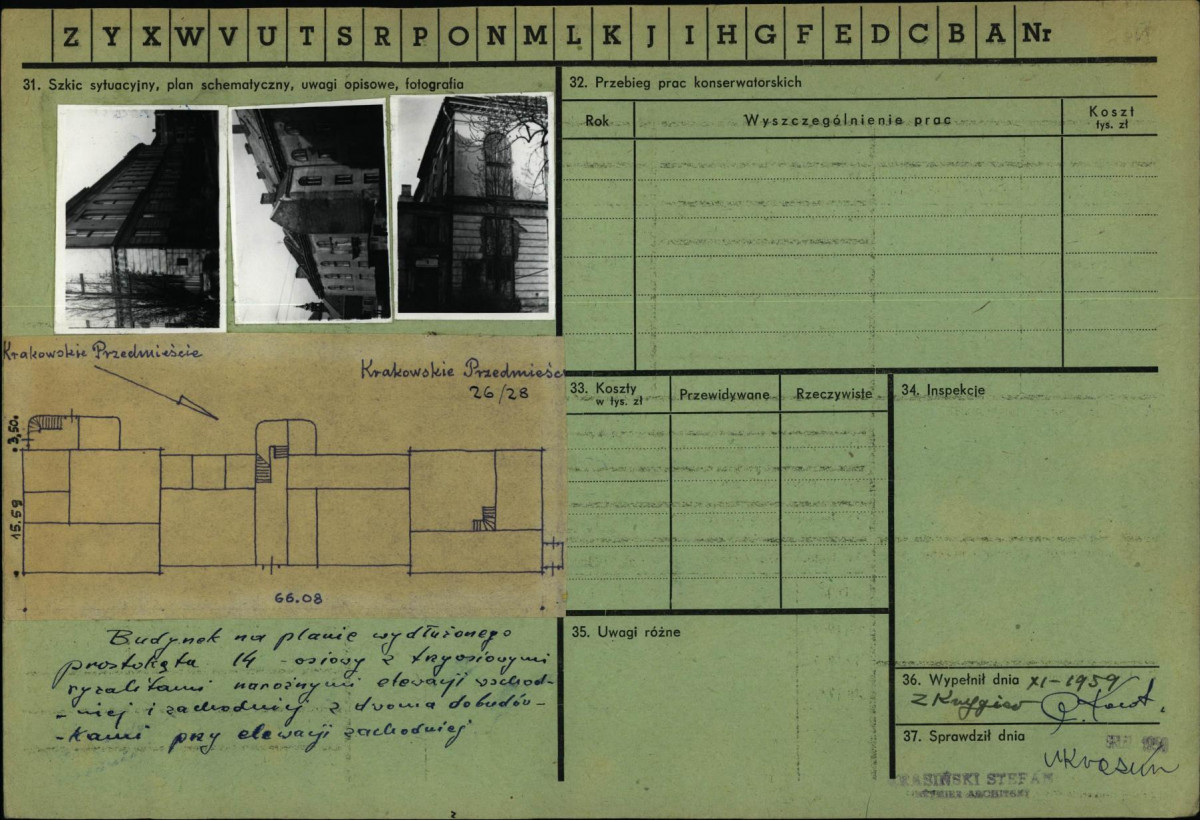 Z Y X W V U T S R P O N M L K J I H G F E D C B A Nr
31. Szkic sytuacyjny, plan schematyczny, uwagi opisowe, fotografia
Krakowskie Przedmieście
Krakowskie Przedmieśc
26/28
3,50
15.59
66.08
Budynek na planie wydłużonego
prostokąta 14 -osiowy z trzyosiowymi
ryzalitami narożnymi elewacji wschod-
-niej i zachodniej z dwoma dobudów-
-kami przy elewacji zachodniej
32. Przebieg prac konserwatorskich
Rok
Wyszczególnienie prac
Koszt
tys. zł
33. Koszty
w tys. zł
Przewidywane
Rzeczywiste
34. Inspekcje
35. Uwagi różne
36. Wypełnił dnia XI-1959
37. Sprawdził dnia
KASIŃSKI STEFAN
ARCHITEKT